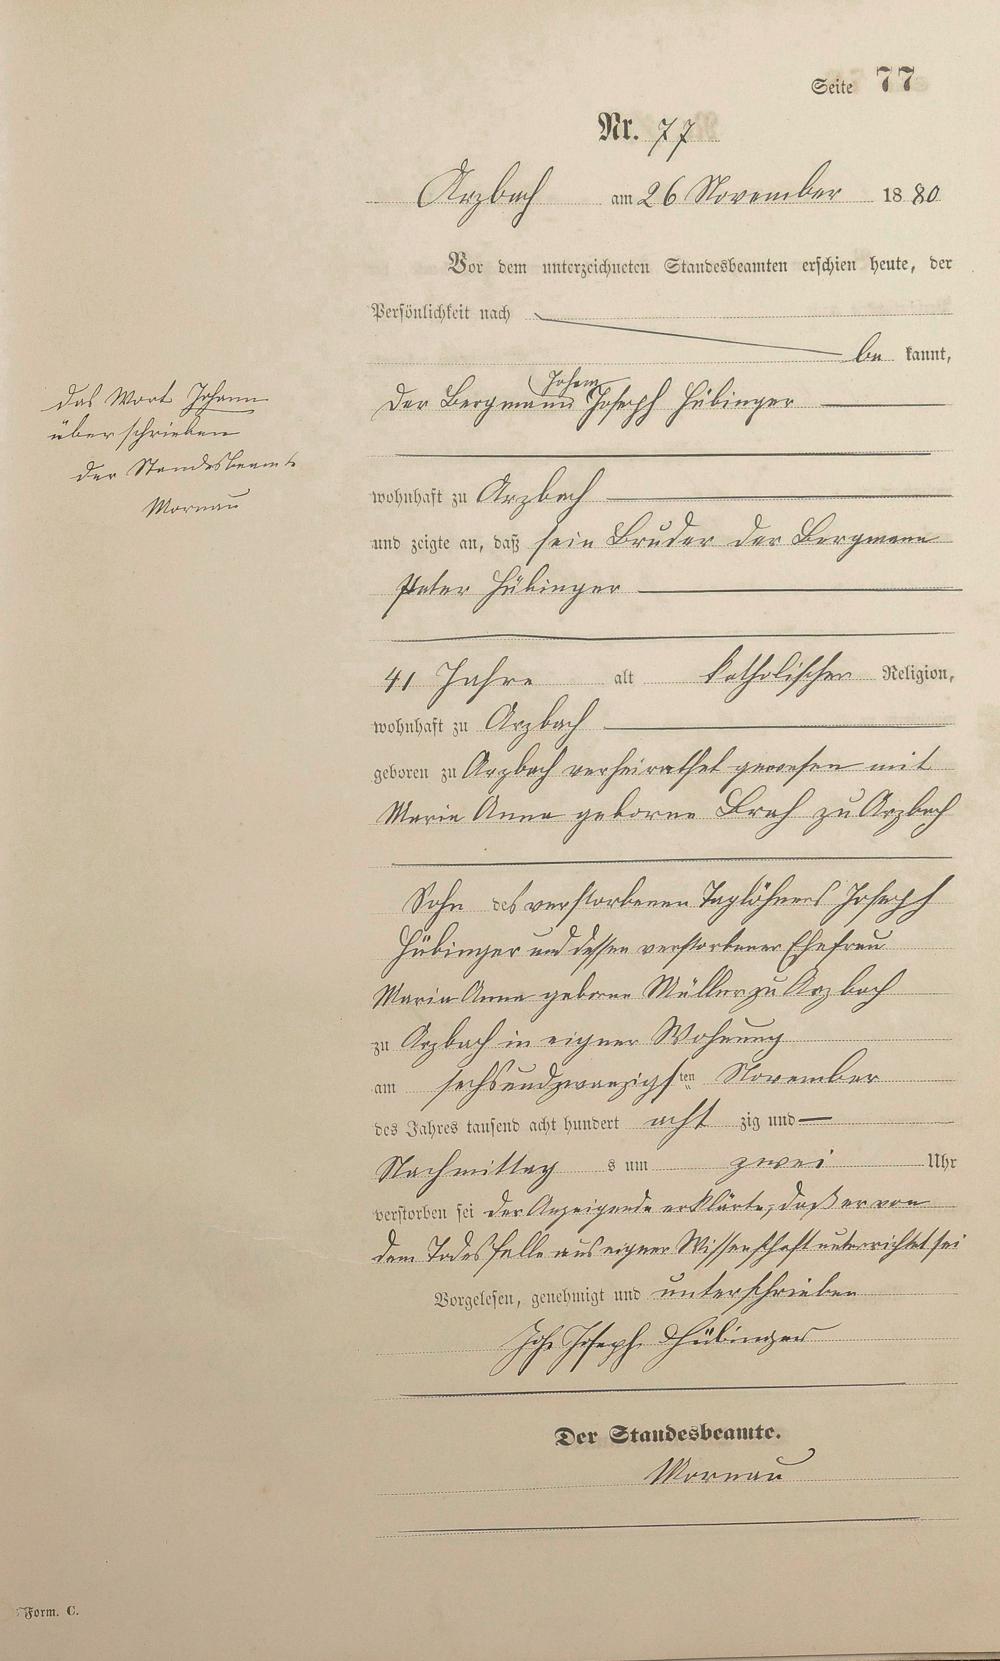 Seite 77
Nr. 77
Arzbach am 26 November 1880
Vor dem unterzeichneten Standesbeamten erschien heute, der
Persönlichkeit nach
be kannt,
Johann
der Bergmann Joseph Hübinger
das Wort Johann
überschrieben
der Standesbeamte
Mornau
wohnhaft zu Arzbach
und zeigte an, daß sein Bruder der Bergmann
Peter Hübinger
41 Jahre alt katholischer Religion,
wohnhaft zu Arzbach
geboren zu Arzbach verheirathet gewesen mit
Maria Anna geborne Brah zu Arzbach
Sohn des verstorbenen Taglöhners Joseph
Hübinger und dessen verstorbener Ehefrau
Maria Anna geborne Müller zu Arzbach
zu Arzbach in eigner Wohnung
am sechsundzwanzigsten November
des Jahres tausend acht hundert acht zig und
Nachmittag s um zwei Uhr
verstorben sei der Anzeigende erklärte, daß er von
dem Todesfalle aus eigner Wissenschaft unterrichtet sei
Vorgelesen, genehmigt und unterschrieben
Joh. Joseph Hübinger
Der Standesbeamte.
Mornau
Form. C.